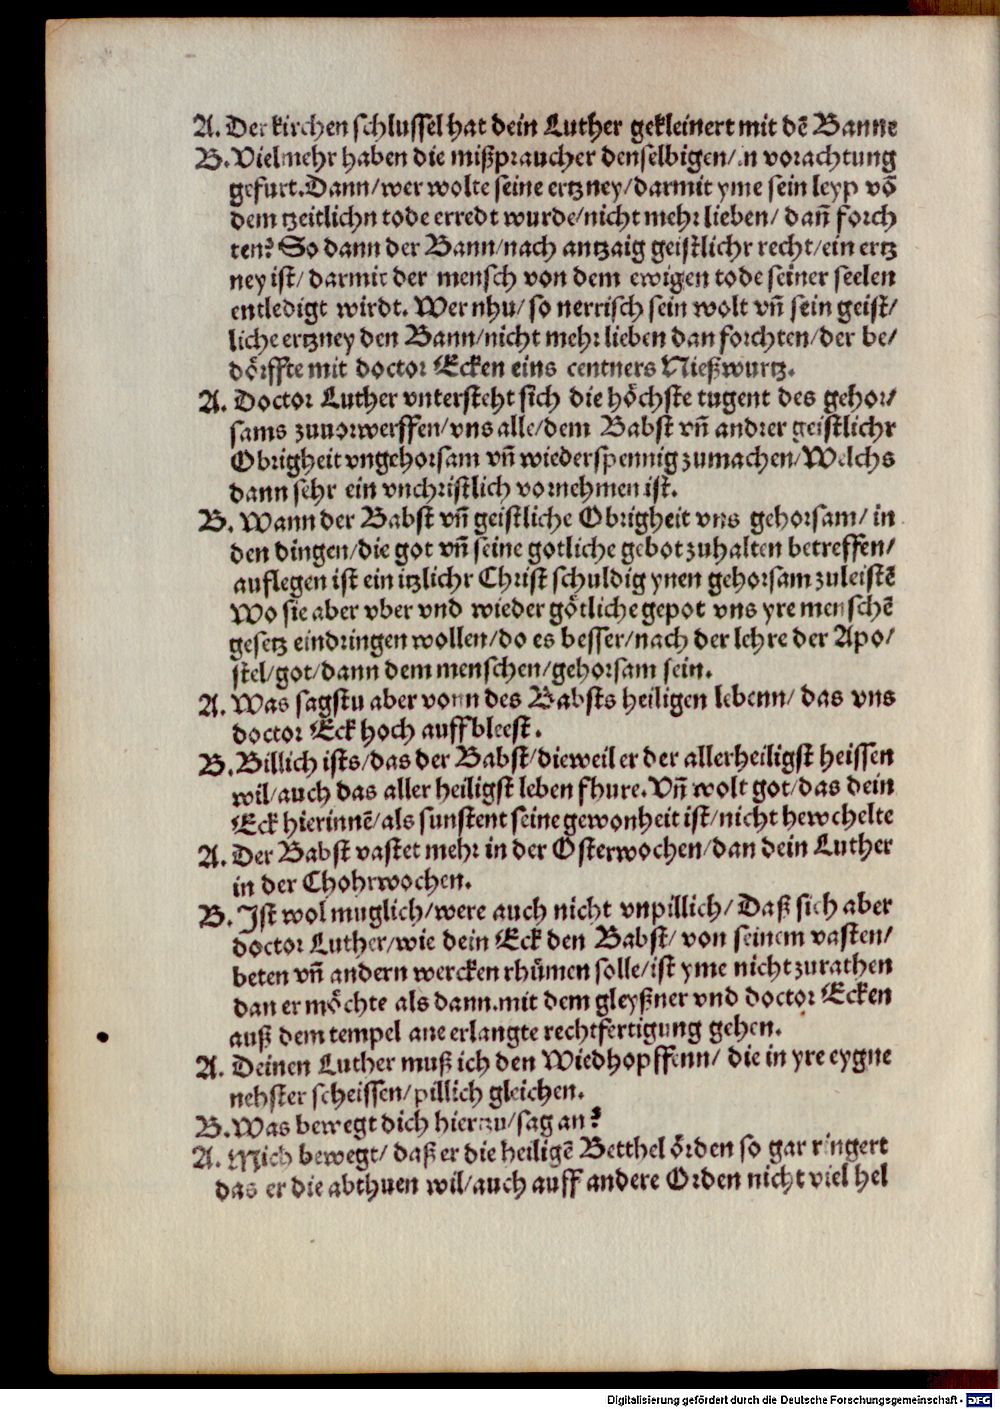 A. Der kirchen schlussel hat dein Luther gekleinert mit dē Banne
B. Vielmehr haben die mißpraucher denselbigen/ in vorachtung
gefurt. Dann/ wer wolte seine ertzney/ darmit yme sein leyp vō
dem tzeitlichn tode erredt wurde/ nicht mehr lieben/ dañ forch
ten? So dann der Bann/ nach antzaig geistlichr recht/ ein ertz
ney ist/ darmit der mensch von dem ewigen tode seiner seelen
entledigt wirdt. Wer nhu/ so nerrisch sein wolt vñ sein geist/
liche ertzney den Bann/ nicht mehr lieben dan forchten/ der be/
dörffte mit doctor Ecken eins centners Nießwurtz.
A. Doctor Luther vntersteht sich die höchste tugent des gehor/
sams zuuorwerffen/ vns alle/ dem Babst vñ andrer geistlichr
Obrigheit vngehorsam vñ wiederspennig zumachen/ Welchs
dann sehr ein vnchristlich vornehmen ist.
B. Wann der Babst vñ geistliche Obrigheit vns gehorsam/ in
den dingen/ die got vñ seine gotliche gebot zuhalten betreffen/
auflegen ist ein itzlichr Christ schuldig ynen gehorsam zuleistē
Wo sie aber vber vnd wieder götliche gepot vns yre menschē
gesetz eindringen wollen/ do es besser/ nach der lehre der Apo/
stel/ got/ dann dem menschen/ gehorsam sein.
A. Was sagstu aber vonn des Babsts heiligen lebenn/ das vns
doctor Eck hoch auffbleest.
B. Billich ists/ das der Babst/ dieweil er der allerheiligst heissen
wil/ auch das aller heiligst leben fhure. Vñ wolt got/ das dein
Eck hierinnē/ als sunstent seine gewonheit ist/ nicht hewchelte
A. Der Babst vastet mehr in der Osterwochen/ dan dein Luther
in der Chohrwochen.
B. Ist wol muglich/ were auch nicht vnpillich/ Daß sich aber
doctor Luther/ wie dein Eck den Babst/ von seinem vasten/
beten vñ andern wercken rhümen solle/ ist yme nicht zurathen
dan er möchte als dann. mit dem gleyßner vnd doctor Ecken
auß dem tempel ane erlangte rechtfertigung gehen.
A. Deinen Luther muß ich den Wiedhopffenn/ die in yre eygne
nehster scheissen/ pillich gleichen.
B. Was bewegt dich hierzu/ sag an?
A. Mich bewegt/ daß er die heiligē Betthel örden so gar ringert
das er die abthuen wil/ auch auff andere Orden nicht viel hel
Digitalisierung gefördert durch die Deutsche Forschungsgemeinschaft - DFG